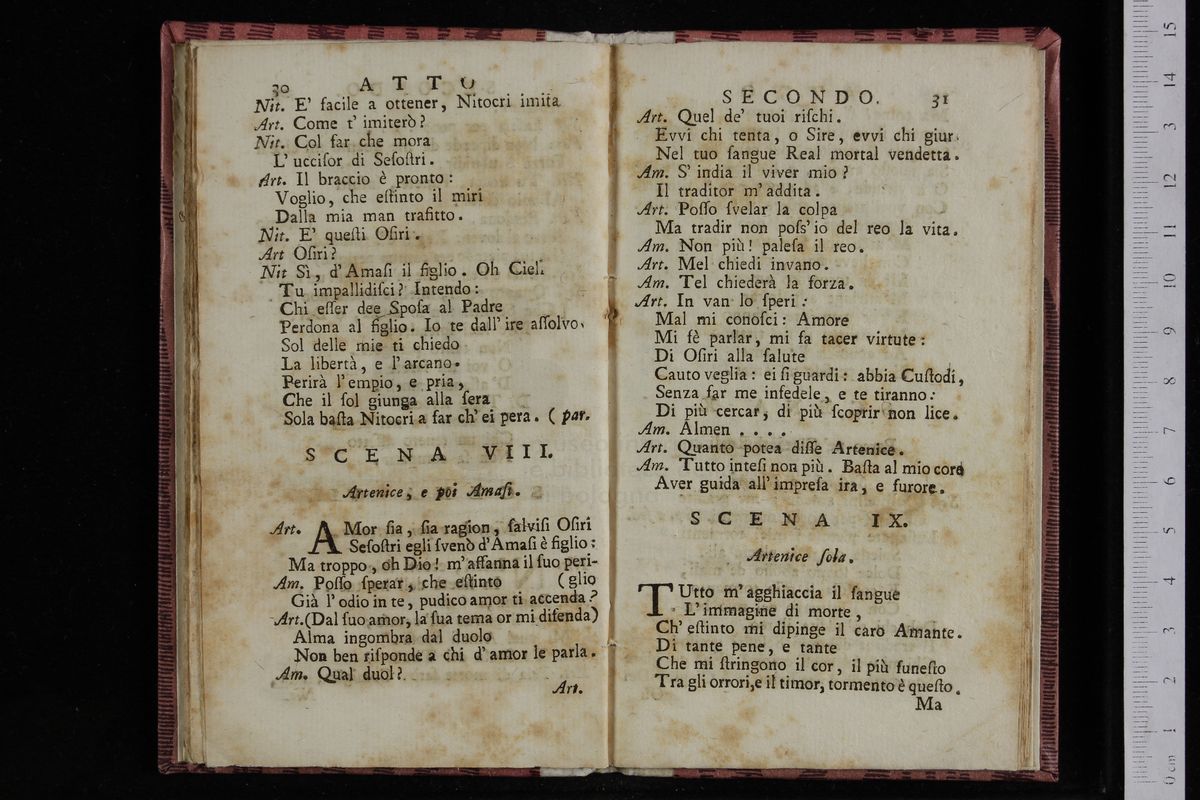 30 ATTO
Nit. E' facile a ottener, Nitocri imita
Art. Come t' imiterò?
Nit. Col far che mora
L' uccisor di Sesostri.
Art. Il braccio è pronto:
Voglio, che estinto il miri
Dalla mia man trafitto.
Nit. E' questi Osiri.
Art Osiri?
Nit Sì, d' Amasi il figlio. Oh Ciel!
Tu impallidisci? Intendo:
Chi esser dee Sposa al Padre
Perdona al figlio. Io te dall' ire assolvo,
Sol delle mie ti chiedo
La libertà, e l' arcano.
Perirà l' empio, e pria,
Che il sol giunga alla sera
Sola basta Nitocri a far ch' ei pera. ( par.
SCENA VIII.
Artenice, e poi Amasi.
Art. AMor sia, sia ragion, salvisi Osiri
Sesostri egli svenò d' Amasi è figlio:
Ma troppo, oh Dio! m' affanna il suo peri-
Am. Posso sperar, che estinto (glio
Già l' odio in te, pudico amor ti accenda?
Art.(Dal suo amor, la sua tema or mi difenda)
Alma ingombra dal duolo
Non ben risponde a chi d' amor le parla.
Am. Qual duol?
Art.
SECONDO. 31
Art. Quel de' tuoi rischi.
Evvi chi tenta, o Sire, evvi chi giur
Nel tuo sangue Real mortal vendetta.
Am. S' india il viver mio?
Il traditor m' addita.
Art. Posso svelar la colpa
Ma tradir non poss' io del reo la vita.
Am. Non più! palesa il reo.
Art. Mel chiedi invano.
Am. Tel chiederà la forza.
Art. In van lo speri:
Mal mi conosci: Amore
Mi fè parlar, mi fa tacer virtute:
Di Osiri alla salute
Cauto veglia: ei si guardi: abbia Custodi,
Senza far me infedele, e te tiranno:
Di più cercar, di più scoprir non lice.
Am. Almen . . . .
Art. Quanto potea disse Artenice.
Am. Tutto intesi non più. Basta al mio core
Aver guida all' impresa ira, e furore.
SCENA IX.
Artenice sola.
TUtto m' agghiaccia il sangue
L' immagine di morte,
Ch' estinto mi dipinge il caro Amante.
Di tante pene, e tante
Che mi stringono il cor, il più funesto
Tra gli orrori,e il timor, tormento è questo.
Ma
0 cm 1 2 3 4 5 6 7 8 9 10 11 12 13 14 15